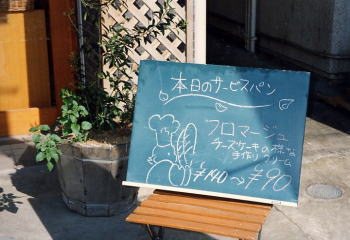 本日のサービスパン
フロマージュ
チーズケーキの様な
手作りクリーム
¥140→¥90